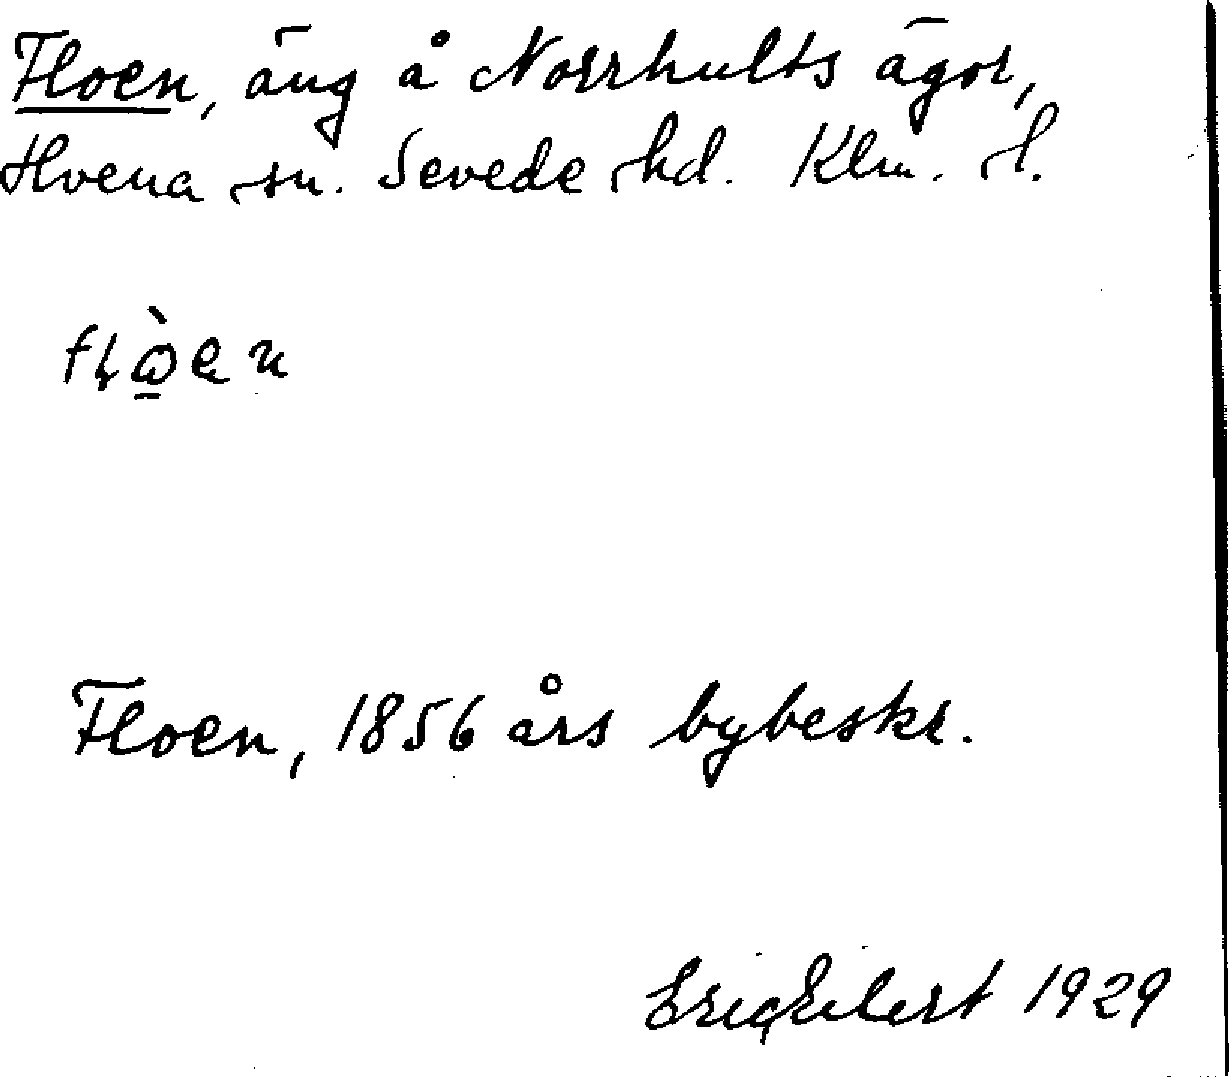 Floen, äng å Norrhults ägor,
Hvena sn. Sevede hd. Klm. l.
Floen, 1856 års bybeskr.
Eric Eilert 1929